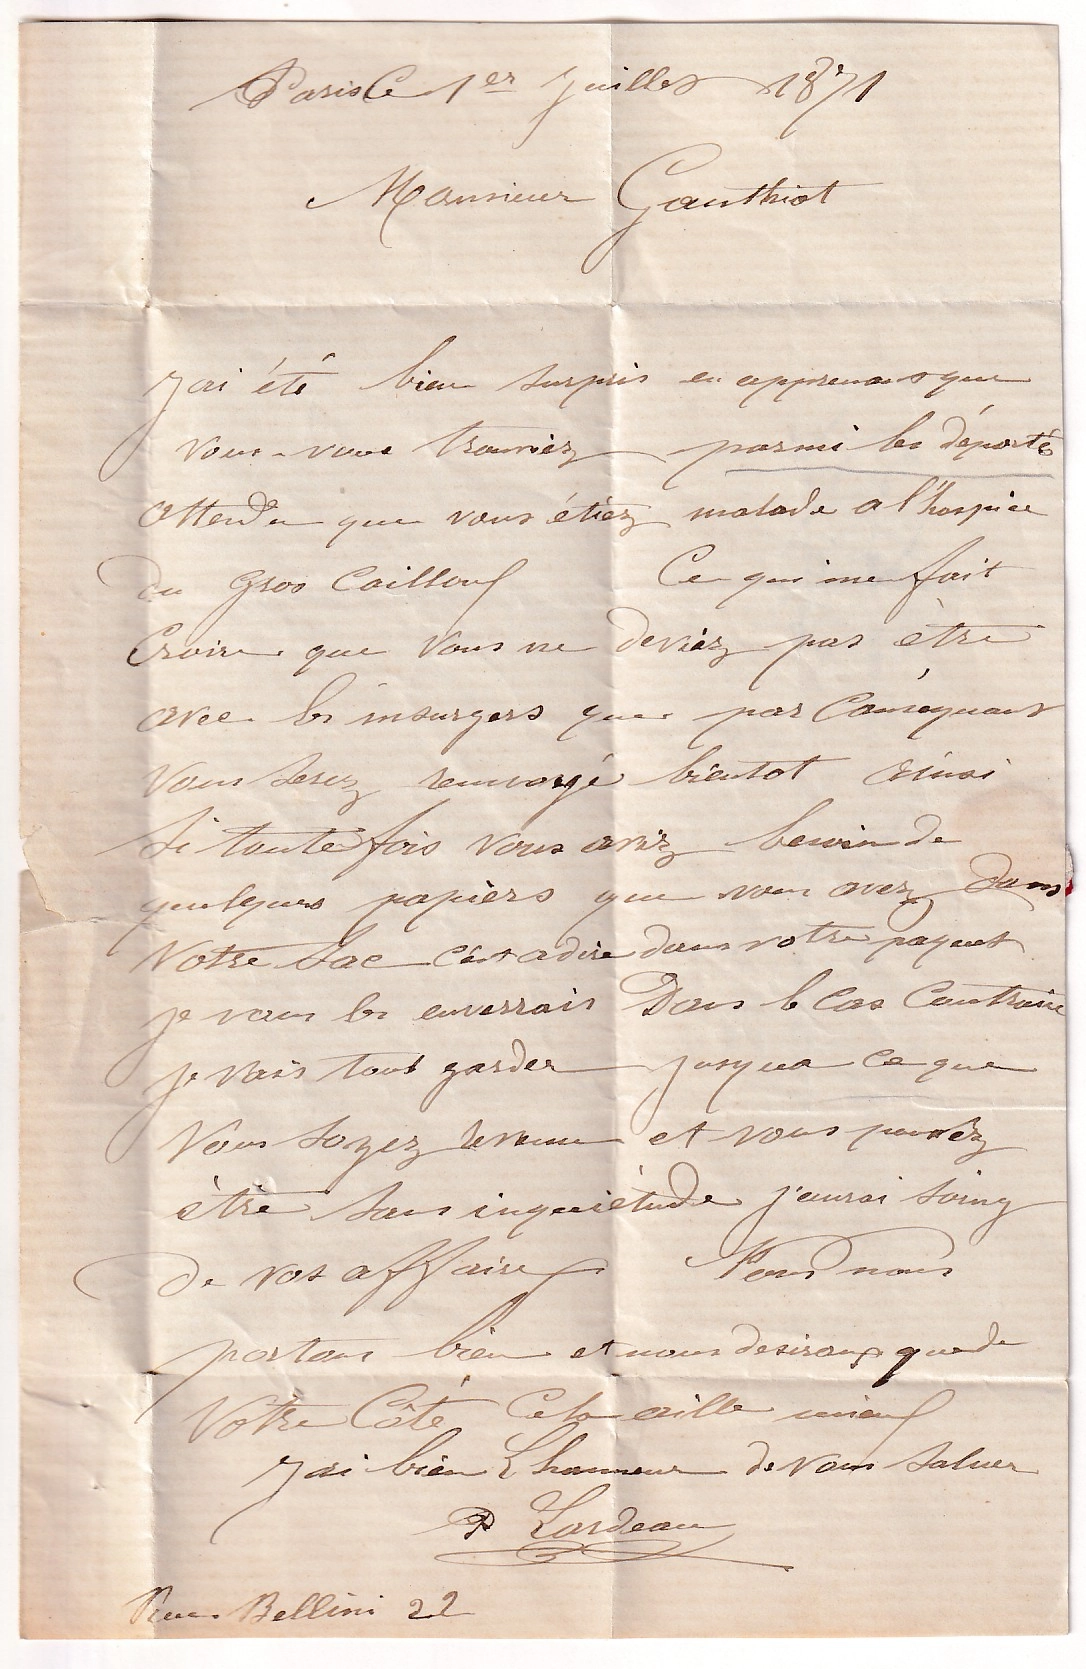 Paris Le 1er Juillet 1871
Monsieur Gauthiot
J'ai été bien surpris en apprenant que
vous vous trouviez parmi les déporté
attendu que vous étiez malade a l'hospice
du Gros Cailloux Ce qui me fait
Croire que vous ne deviez pas être
avec les insurgers que par Conséquent
vous serez renvoyé bientot ainsi
si toutefois vous aviez besoin de
quelques papiers que vous avez dans
votre Sac C'est a dire dans votre paquet
je vous les enverrais Dans le Cas Contraire
je vais tout garder jusqua ce que
vous soyez revenu et vous pouvez
être sans inquiétude j'aurai soing
de vos affaires Nous nous
portons bien et nous desirons que de
Votre Côté Cela aille mieux
J'ai bien L'honneur de vous saluer
P Lardeau
Rue Bellini 22